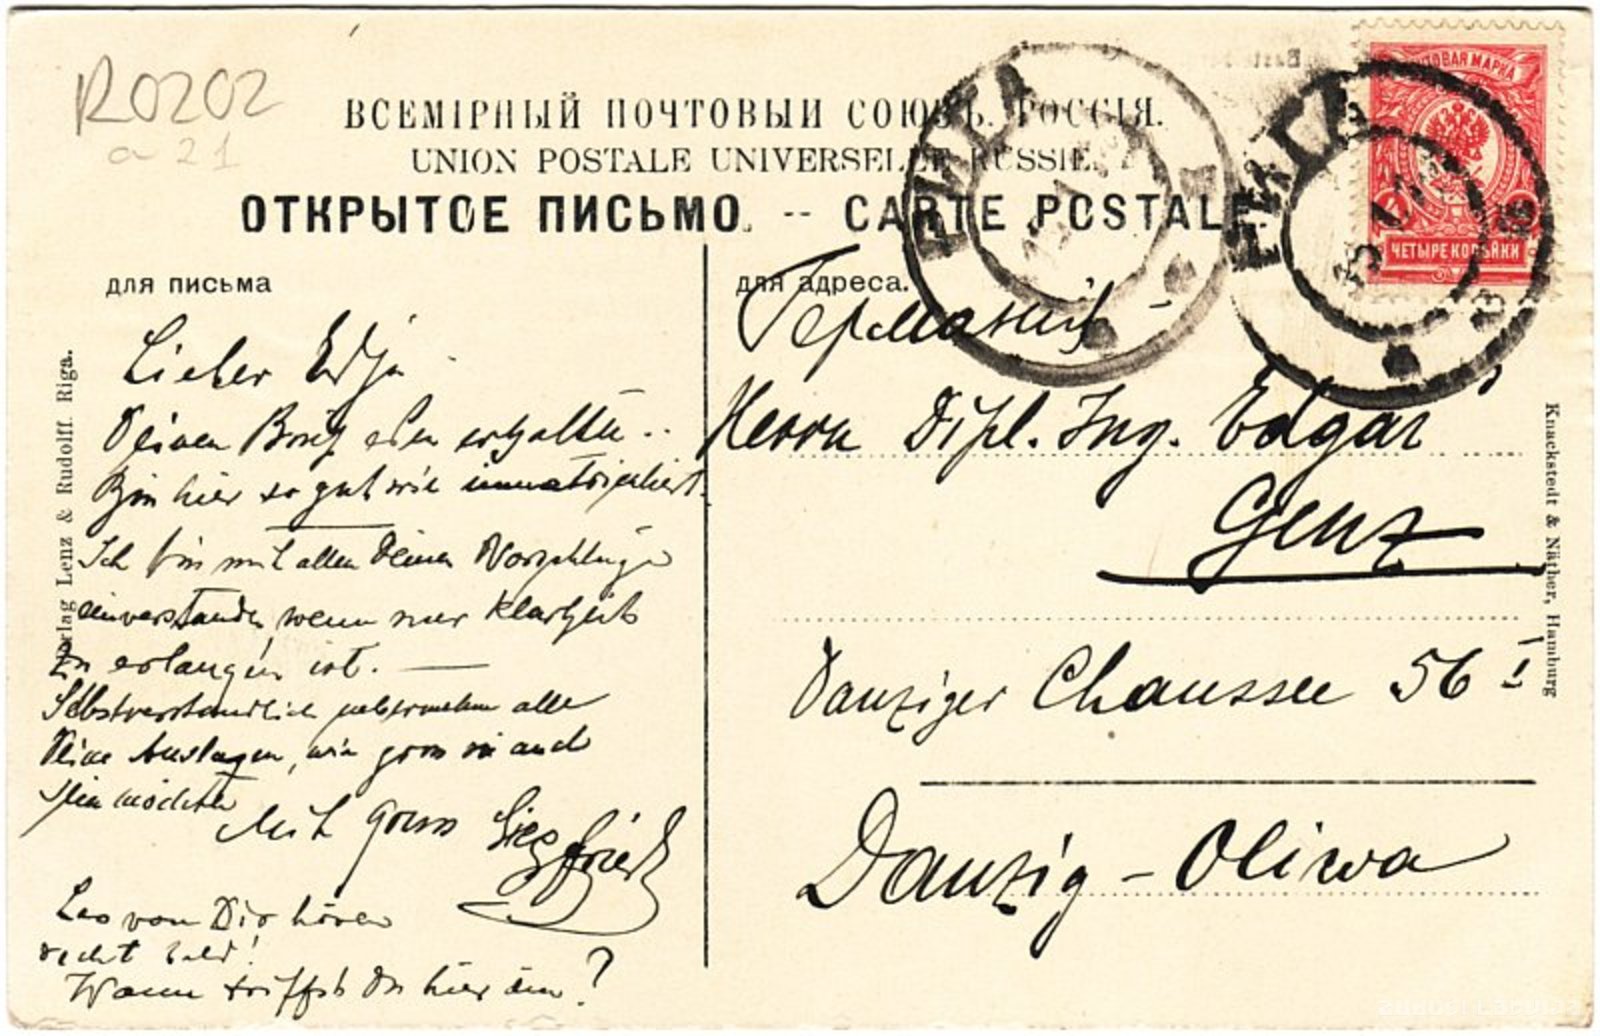 R0202
a 21
ВСЕМІРНЫЙ ПОЧТОВЫЙ СОЮЗЪ. РОССІЯ.
UNION POSTALE UNIVERSELLE RUSSIE.
ОТКРЫТОЕ ПИСЬМО. -- CARTE POSTALE.
РИГА
РИГА
ПОЧТОВАЯ МАРКА
ЧЕТЫРЕ КОПѢЙКИ
для письма
Lieber Edja
Deinen Brief eben erhalten..
Bin hier so gut wie immatrikuliert.
Ich bin mit allen Deinen Vorschlägen
einverstanden, wenn nur Klarheit
zu erlangen ist. —
Selbstverständlich uebernehm alle
Deine Auslagen, wie gross sie auch
sein möchten
Mit Gruss Siegfried
Lass von Dir hören
recht bald!
Wann triffst Du hier ein?
для адреса.
Германія
Herrn Dipl. Ing. Edgar
Genz
Danziger Chaussee 56 I
Danzig - Oliwa
Verlag Lenz & Rudolff. Riga.
Knackstedt & Näther, Hamburg